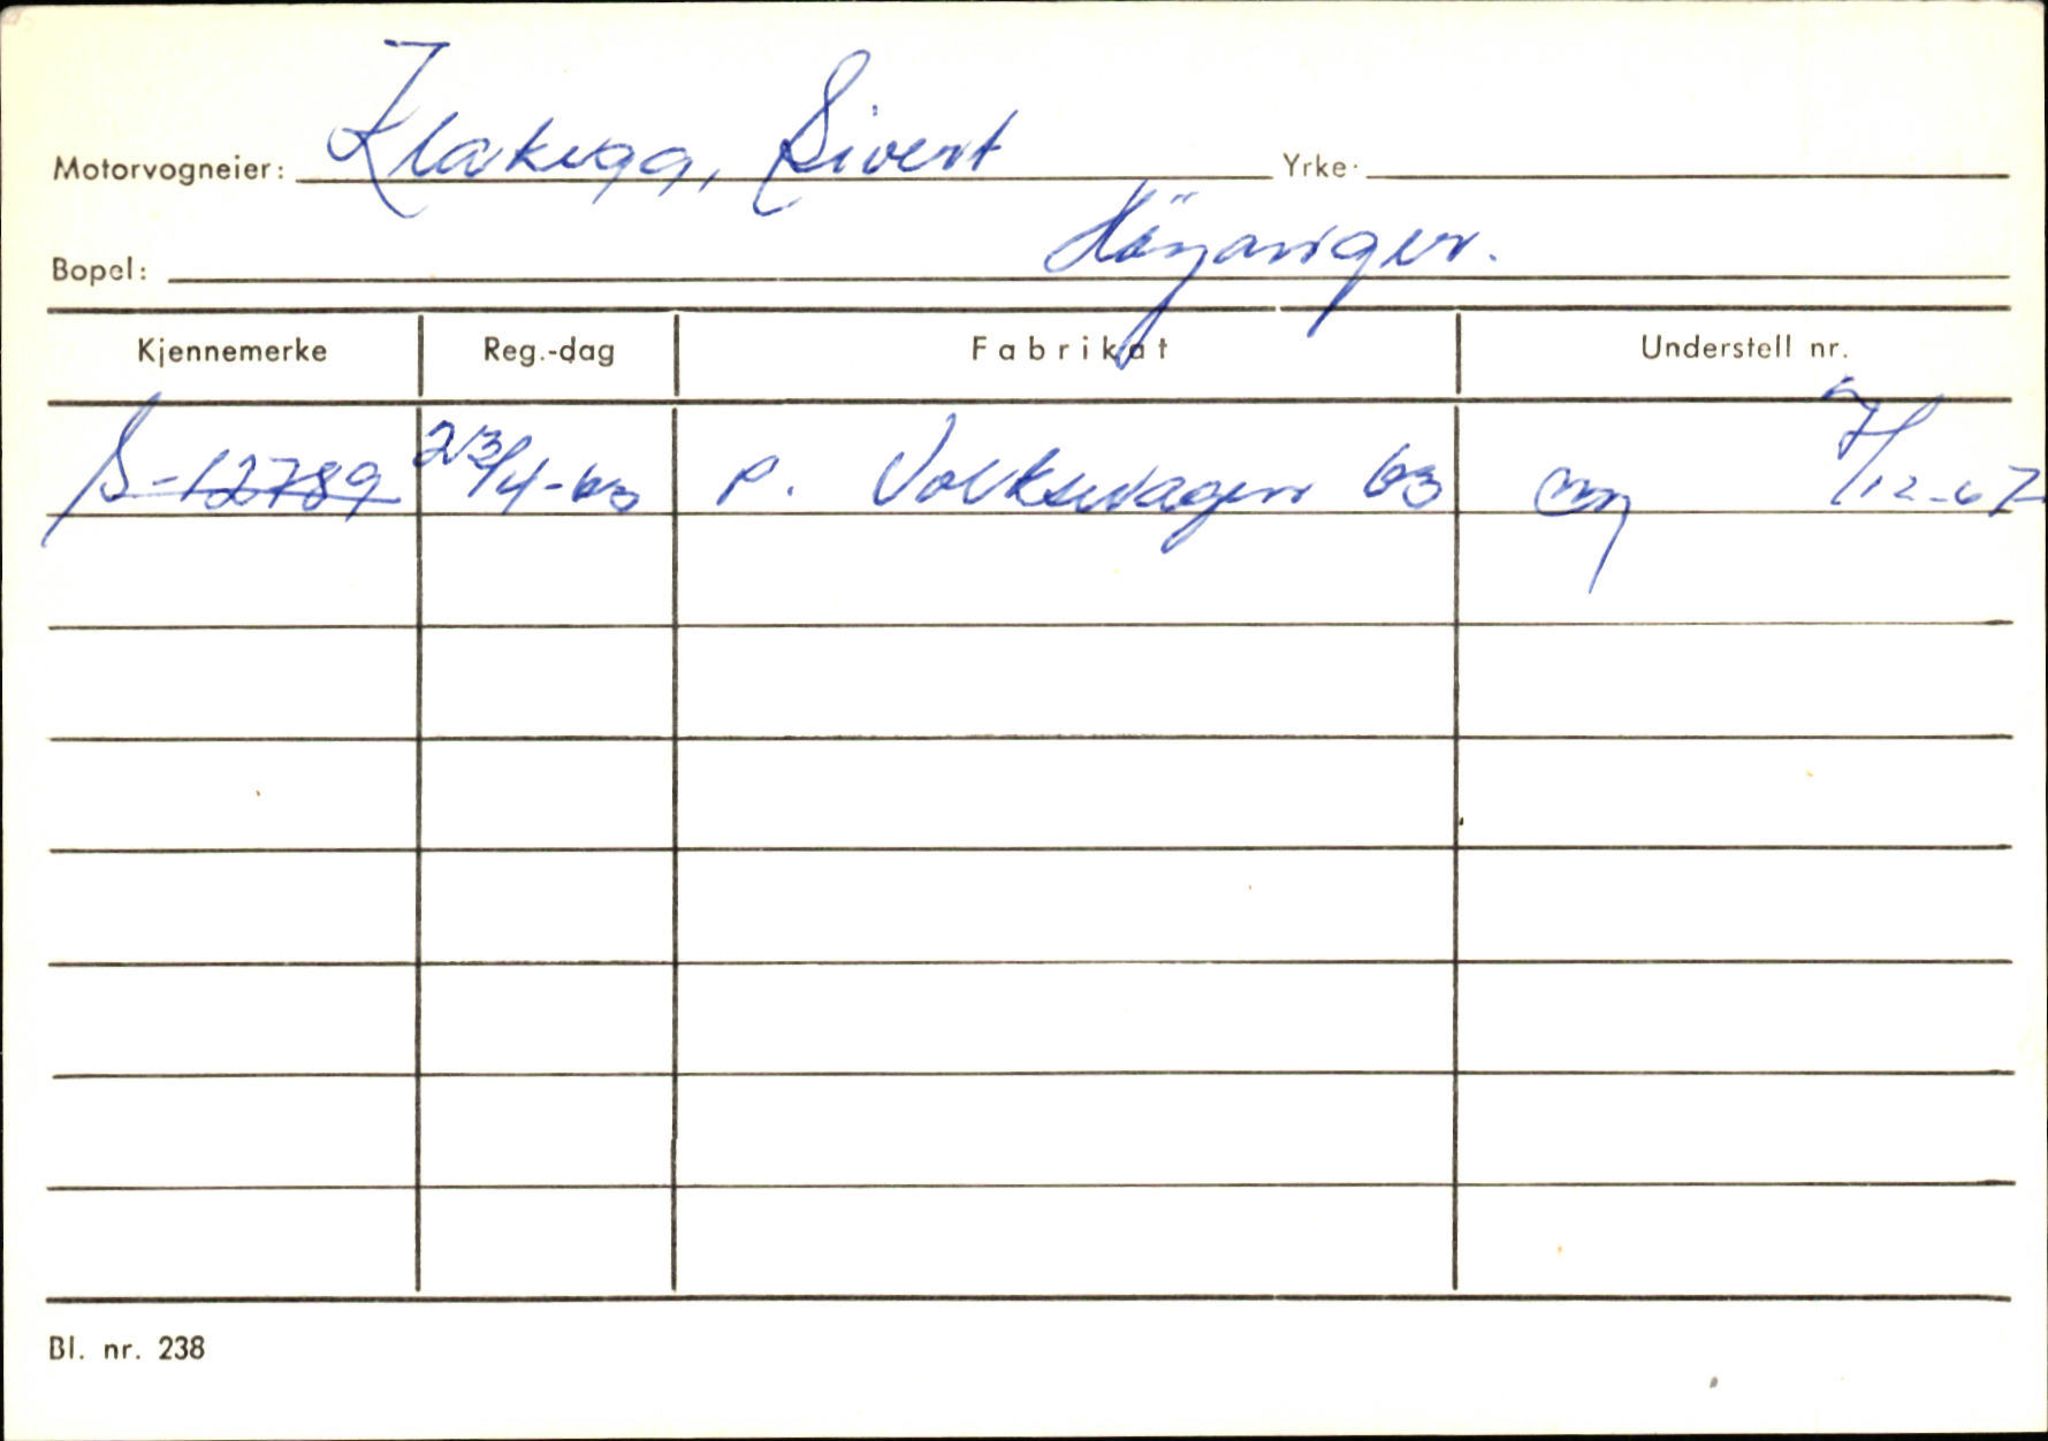 Motorvogneier: Klakegg, Sivert Yrke:
Bopel: Höyanger.
Kjennemerke Reg.-dag Fabrikat Understell nr.
S-12789 23/4-63 P. Volkswagen 63 7/12-67
Bl. nr. 238